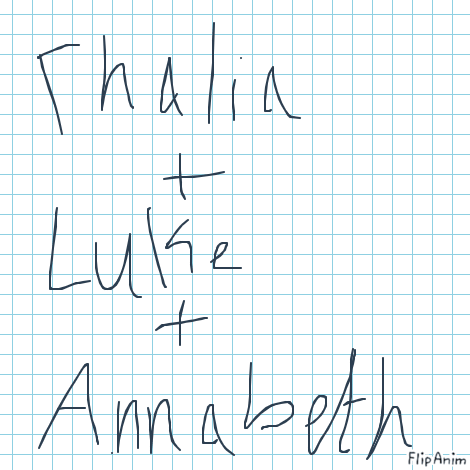 Thalia
+
Luke
+
Annabeth
FlipAnim